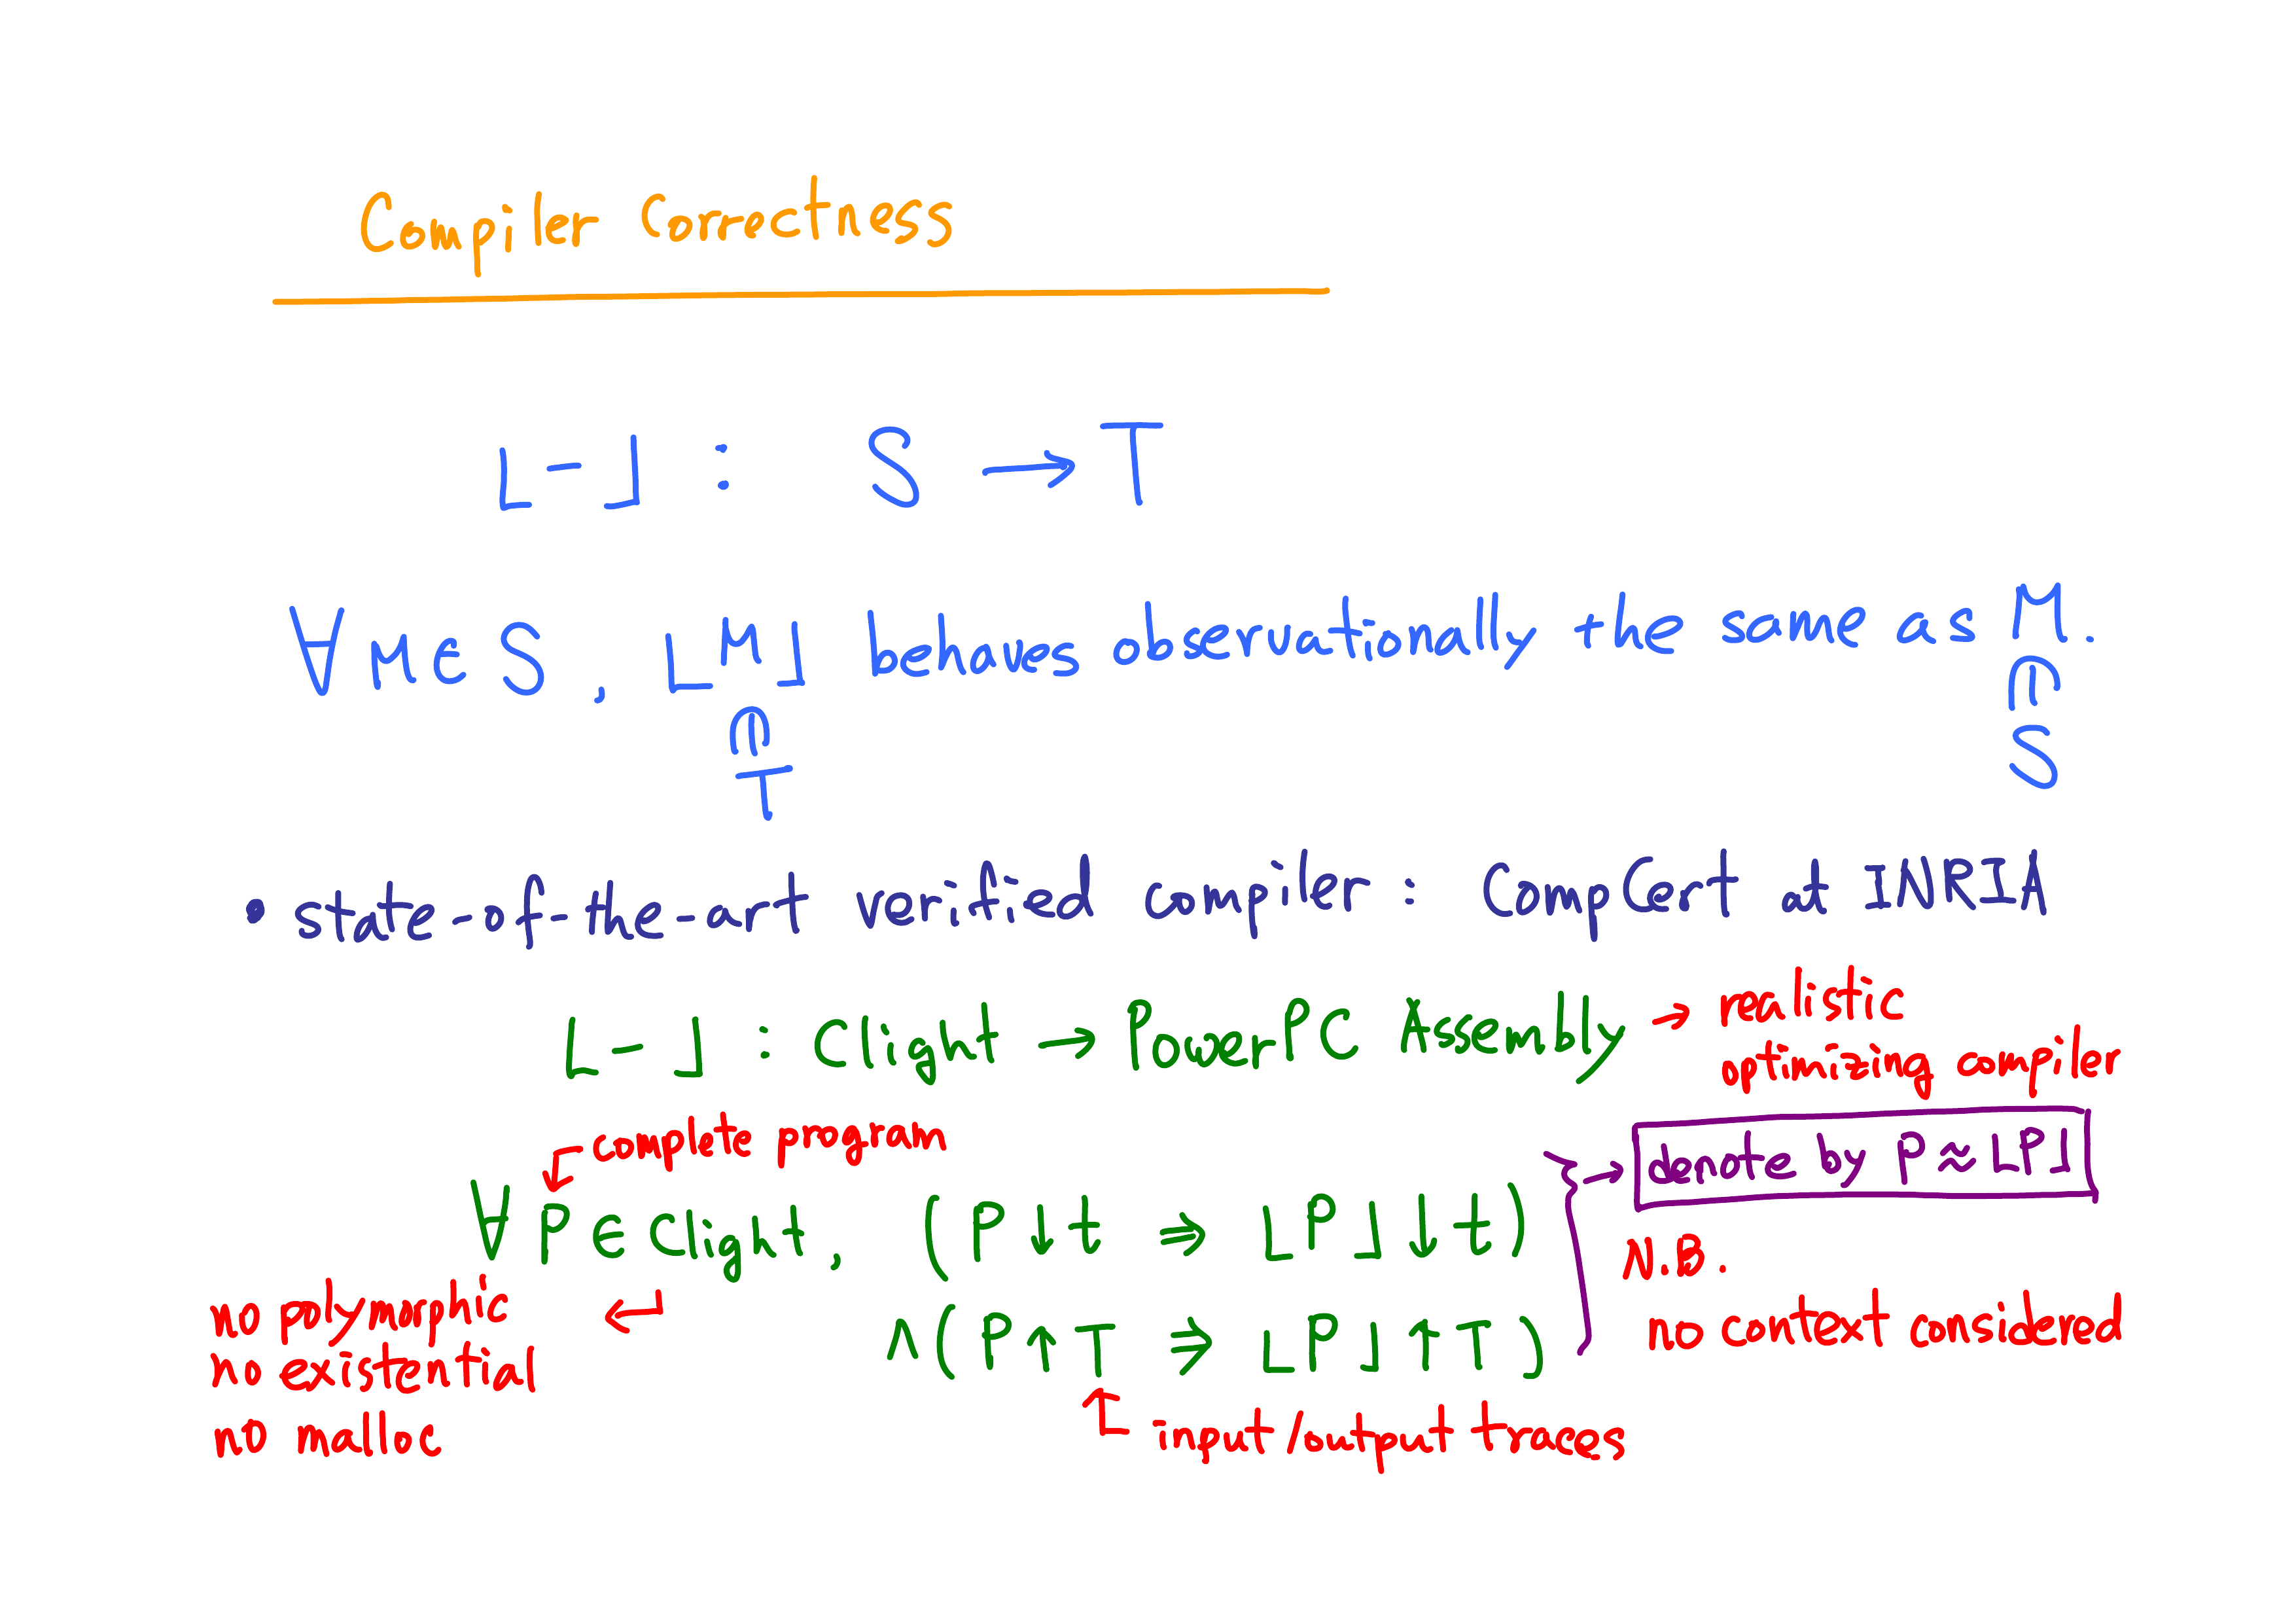 Compiler Correctness
⌊-⌋ : S → T
∀M∈S, ⌊M⌋ behaves observationally the same as M.
∩ ∩
T S
• state-of-the-art verified compiler : CompCert at INRIA
⌊-⌋ : Clight → PowerPC Assembly → realistic
optimizing compiler
complete program
denote by P ≈ ⌊P⌋
∀ P ∈ Clight, (P ↓ t ⇒ ⌊P⌋ ↓ t)
N.B.
no context considered
no polymorphic
no existential
no malloc
∧ (P ↑ T ⇒ ⌊P⌋ ↑ T)
input/output traces